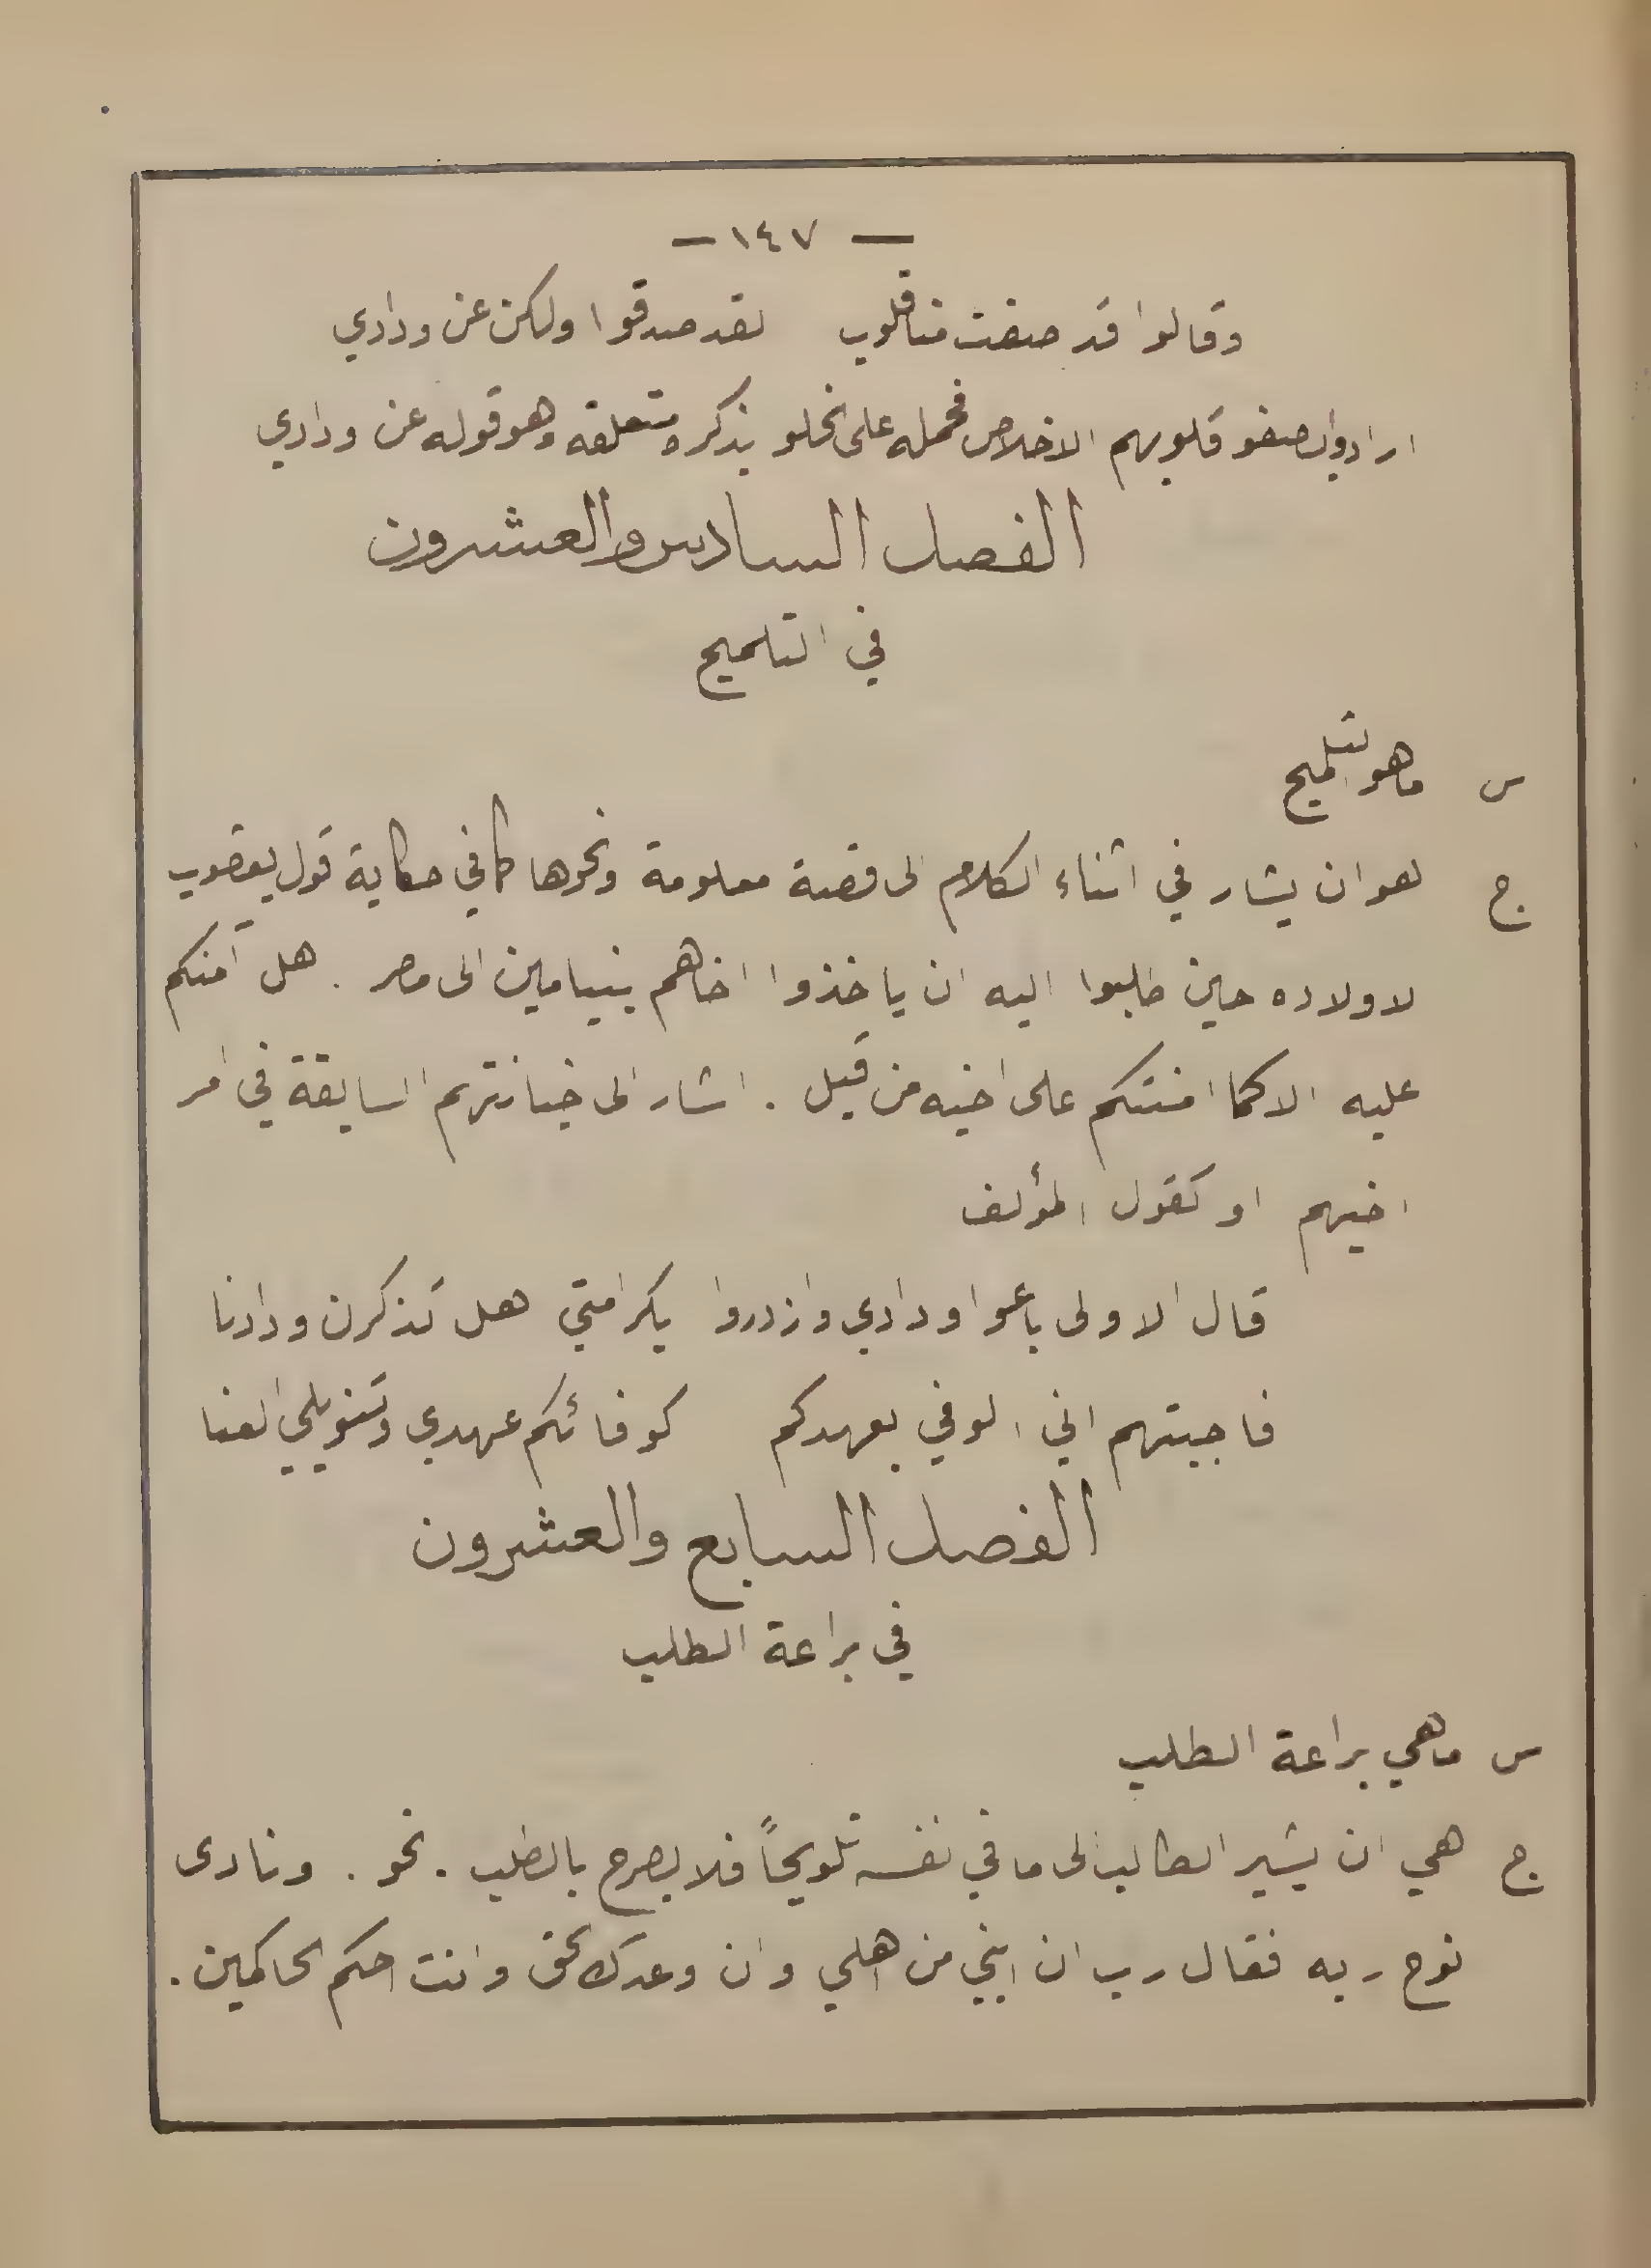 — ١٤٧ —
وقالوا قد صفت منا قلوب لقد صدقوا ولكن عن ودادي
ارادوا بصفو قلوبهم الاخلاص فحمله على الخلو بذكره متعلقه وهو قوله عن ودادي
الفصل السادس والعشرون
في التلميح
س ما هو التلميح
ج هو ان يشار في اثناء الكلام الى قصة معلومة ونحوها كما في حكاية قول يعقوب
لاولاده حين طلبوا اليه ان ياخذوا اخاهم بنيامين الى مصر . هل آمنكم
عليه الا كما امنتكم على اخيه من قبل . اشار الى خيانتهم السابقة في امر
اخيهم او كقول المؤلف
قال الاولى باعوا ودادي وازدروا بكرامتي هل تذكرن ودادنا
فاجبتهم اني الوفي بعهدكم كوفائكم عهدي وتنويلي العنا
الفصل السابع والعشرون
في براعة الطلب
س ما هي براعة الطلب
ج هي ان يشير الطالب الى ما في نفسه تلويحاً فلا يصرح بالطلب . نحو . ونادى
نوح ربه فقال رب ان ابني من اهلي وان وعدك الحق وانت احكم الحاكمين .